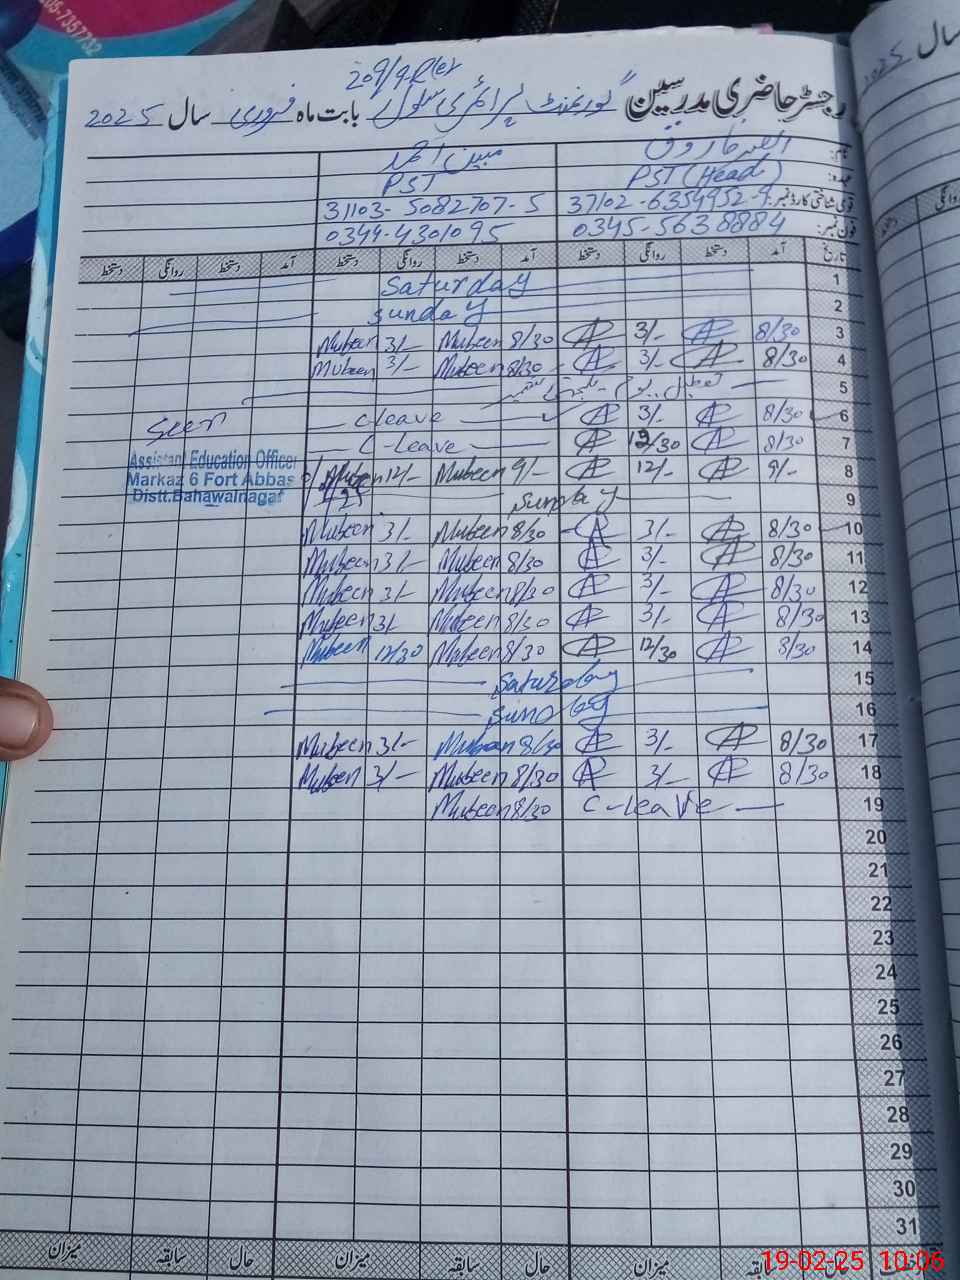 209/9R
رجسٹر حاضری مدرسین گورنمنٹ پرائمری سکول بابت ماہ فروری سال 2025
نام: مبین احمد
عہدہ: PST (Head) PST
قومی شناختی کارڈ نمبر: 37102-6354952-9 31103-5082707-5
فون نمبر: 0345-5638884 0344-4301095
تاریخ آمد دستخط روانگی دستخط آمد دستخط روانگی دستخط آمد دستخط روانگی دستخط
1 Saturday
2 Sunday
3 8/30 3/- 8/30 Mubeen 3/- Mubeen
4 8/30 3/- 8/30 Mubeen 3/- Mubeen
5 تعطیل یوم یکجہتی کشمیر
6 8/30 3/- C-leave
7 8/30 12/30 C-Leave
8 9/- 12/- 9/- Mubeen 12/- Mubeen
Seen
Assistant Education Officer
Markaz 6 Fort Abbas
Distt.Bahawalnagar
9 Sunday
10 8/30 3/- 8/30 Mubeen 3/- Mubeen
11 8/30 3/- 8/30 Mubeen 3/- Mubeen
12 8/30 3/- 8/30 Mubeen 3/- Mubeen
13 8/30 3/- 8/30 Mubeen 3/- Mubeen
14 8/30 12/30 8/30 Mubeen 12/30 Mubeen
15 Saturday
16 Sunday
17 8/30 3/- 8/30 Mubeen 3/- Mubeen
18 8/30 3/- 8/30 Mubeen 3/- Mubeen
19 C-leave 8/30 Mubeen
20
21
22
23
24
25
26
27
28
29
30
31
حال سابقہ میزان حال سابقہ میزان حال سابقہ میزان
19-02-25 10:06
سال 2025
روانگی